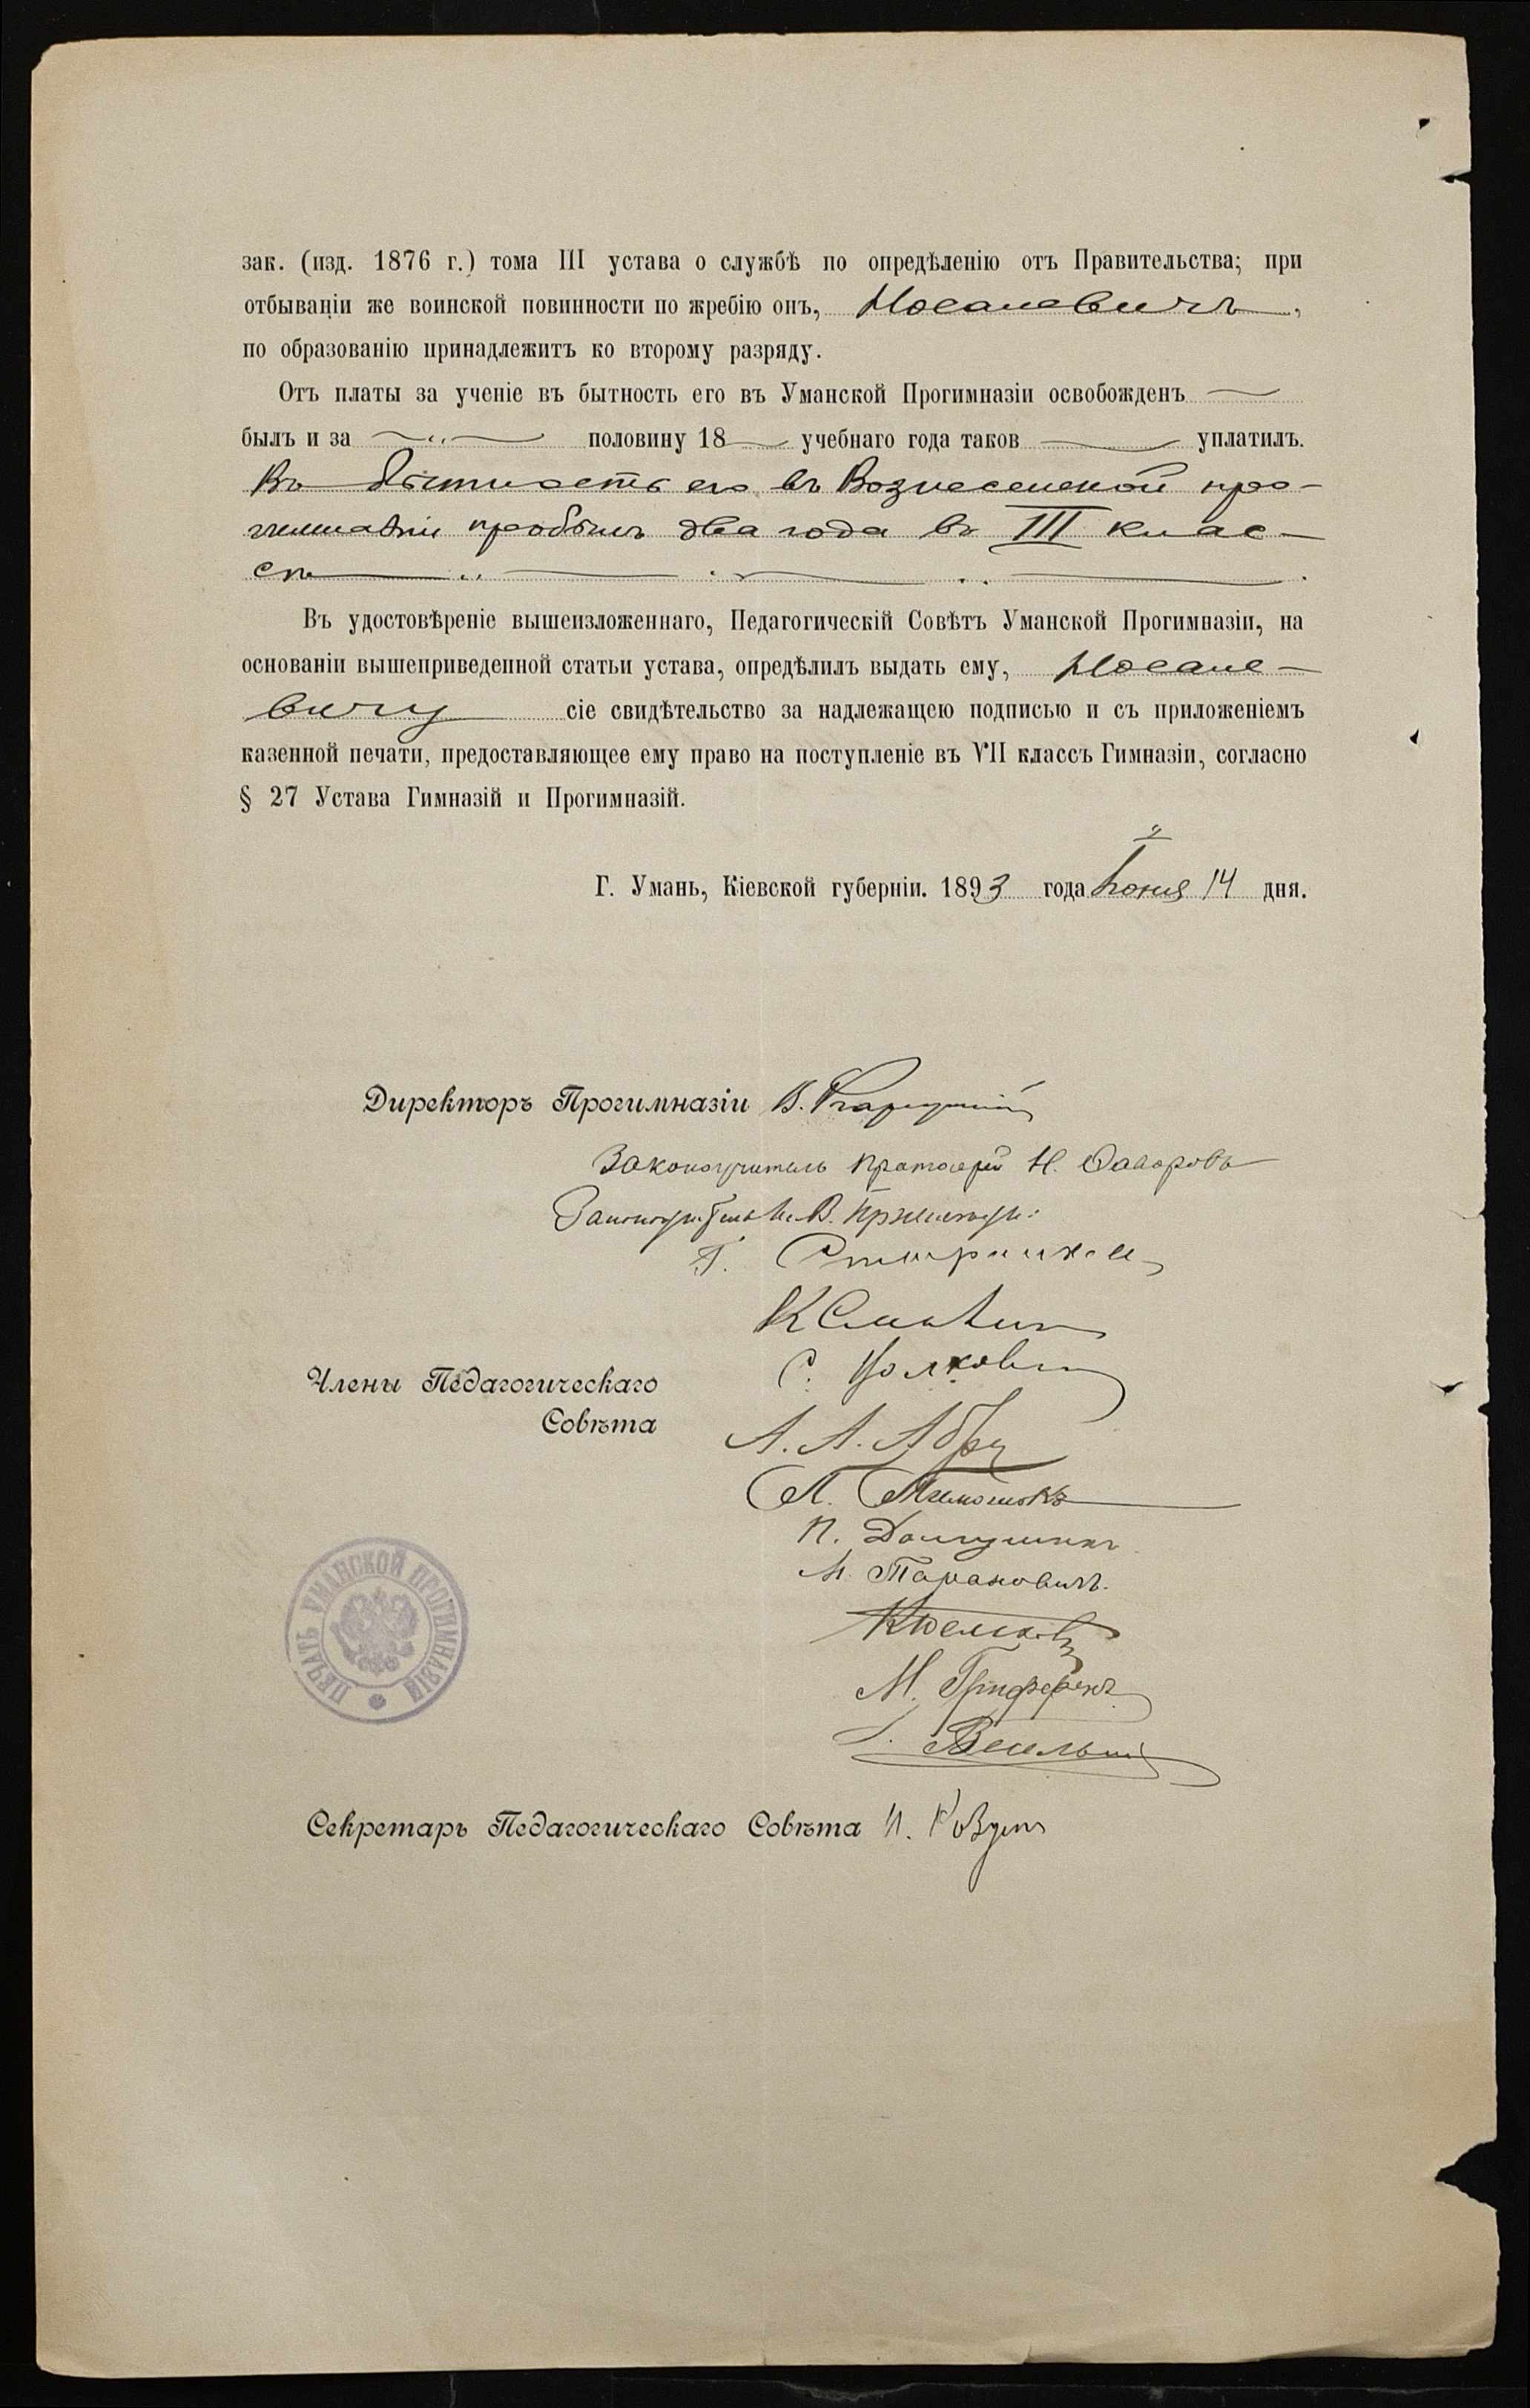 зак. (изд. 1876 г.) тома III устава о службѣ по опредѣленію отъ Правительства; при
отбываніи же воинской повинности по жребію онъ, Носалевичъ,
по образованію принадлежитъ ко второму разряду.
Отъ платы за ученіе въ бытность его въ Уманской Прогимназіи освобожденъ
былъ и за половину 18 учебнаго года таков уплатилъ.
Въ бытность его въ Вознесенской про-
гимназіи пробылъ два года въ III клас-
сѣ
Въ удостовѣреніе вышеизложеннаго, Педагогическій Совѣтъ Уманской Прогимназіи, на
основаніи вышеприведенной статьи устава, опредѣлилъ выдать ему, Носале-
вичу сіе свидѣтельство за надлежащею подписью и съ приложеніемъ
казенной печати, предоставляющее ему право на поступленіе въ VII классъ Гимназіи, согласно
§ 27 Устава Гимназій и Прогимназій.
Г. Умань, Кіевской губерніи. 1893 года Іюня 14 дня.
Директоръ Прогимназіи В.
Законоучитель Протоіерей Н. Фаворовъ
Законоучитель
К
С. Волкович
Члены Педагогическаго
Совѣта
А. А.
А.
П.
М. Тарановичъ.
М.
ПЕЧАТЬ УМАНСКОЙ ПРОГИМНАЗІИ
Секретарь Педагогическаго Совѣта